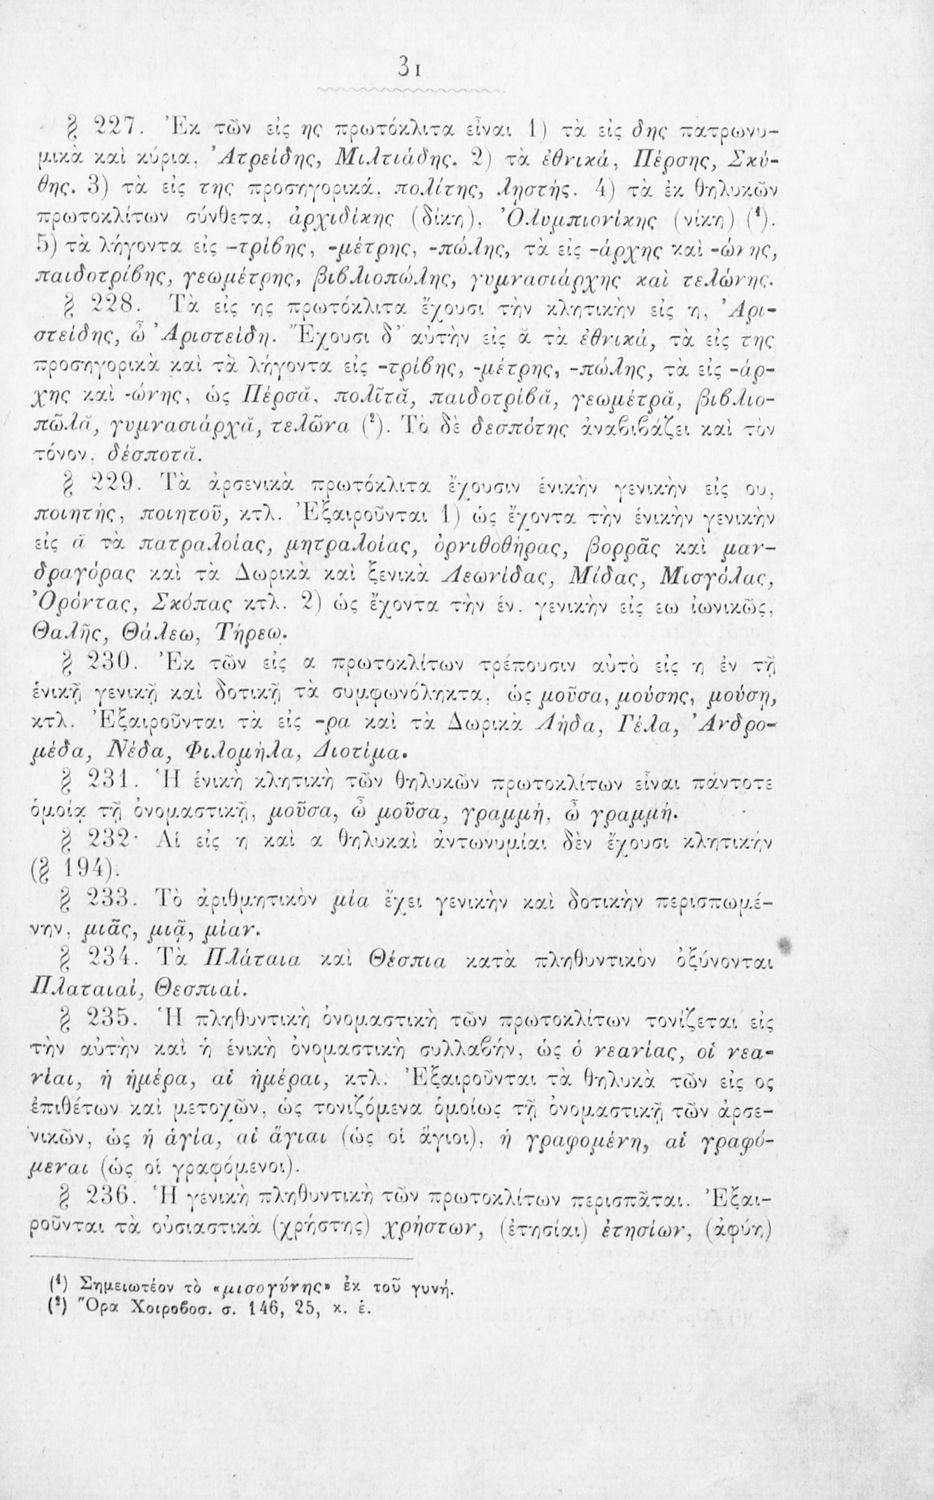 31
§ 227. Ἐκ τῶν εἰς ης πρωτόκλιτα εἶναι 1) τὰ εἰς δης πατρωνυ-
μικὰ καὶ κύρια, Ἀτρείδης, Μιλτιάδης. 2) τὰ ἐθνικά, Πέρσης, Σκύ-
θης. 3) τὰ εἰς της προσηγορικά, πολίτης, ληστής. 4) τὰ ἐκ θηλυκῶν
πρωτοκλίτων σύνθετα, ἀρχιδίκης (δίκη), Ὀλυμπιονίκης (νίκη) (¹).
5) τὰ λήγοντα εἰς -τρίβης, -μέτρης, -πώλης, τὰ εἰς -άρχης καὶ -ώνης,
παιδοτρίβης, γεωμέτρης, βιβλιοπώλης, γυμνασιάρχης καὶ τελώνης.
§ 228. Τὰ εἰς ης πρωτόκλιτα ἔχουσι τὴν κλητικὴν εἰς η, Ἀρι-
στείδης, ὦ Ἀριστείδη. Ἔχουσι δ' αὐτὴν εἰς ᾰ τὰ ἐθνικά, τὰ εἰς της
προσηγορικὰ καὶ τὰ λήγοντα εἰς -τρίβης, -μέτρης, -πώλης, τὰ εἰς -άρ-
χης καὶ -ώνης, ὡς Πέρσᾰ, πολῖτᾰ, παιδοτρίβᾰ, γεωμέτρᾰ, βιβλιο-
πῶλᾰ, γυμνασιάρχᾰ, τελῶνα (²). Τὸ δὲ δεσπότης ἀναβιβάζει καὶ τὸν
τόνον, δέσποτᾰ.
§ 229. Τὰ ἀρσενικὰ πρωτόκλιτα ἔχουσιν ἑνικὴν γενικὴν εἰς ου,
ποιητής, ποιητοῦ, κτλ. Ἐξαιροῦνται 1) ὡς ἔχοντα τὴν ἑνικὴν γενικὴν
εἰς ᾱ τὰ πατραλοίας, μητραλοίας, ὀρνιθοθήρας, βορρᾶς καὶ μαν-
δραγόρας καὶ τὰ Δωρικὰ καὶ ξενικὰ Λεωνίδας, Μίδας, Μισγόλας,
Ὀρόντας, Σκόπας κτλ. 2) ὡς ἔχοντα τὴν ἑν. γενικὴν εἰς εω ἰωνικῶς,
Θαλῆς, Θάλεω, Τήρεω.
§ 230. Ἐκ τῶν εἰς α πρωτοκλίτων τρέπουσιν αὐτὸ εἰς η ἐν τῇ
ἑνικῇ γενικῇ καὶ δοτικῇ τὰ συμφωνόληκτα, ὡς μοῦσα, μούσης, μούσῃ,
κτλ. Ἐξαιροῦνται τὰ εἰς -ρα καὶ τὰ Δωρικὰ Λήδα, Γέλα, Ἀνδρο-
μέδα, Νέδα, Φιλομήλα, Διοτίμα.
§ 231. Ἡ ἑνικὴ κλητικὴ τῶν θηλυκῶν πρωτοκλίτων εἶναι πάντοτε
ὁμοίᾳ τῇ ὀνομαστικῇ, μοῦσα, ὦ μοῦσα, γραμμή, ὦ γραμμή.
§ 232· Αἱ εἰς η καὶ α θηλυκαὶ ἀντωνυμίαι δὲν ἔχουσι κλητικήν
(§ 194).
§ 233. Τὸ ἀριθμητικὸν μία ἔχει γενικὴν καὶ δοτικὴν περισπωμέ-
νην, μιᾶς, μιᾷ, μίαν.
§ 234. Τὰ Πλάταια καὶ Θέσπια κατὰ πληθυντικὸν ὀξύνονται
Πλαταιαί, Θεσπιαί.
§ 235. Ἡ πληθυντικὴ ὀνομαστικὴ τῶν πρωτοκλίτων τονίζεται εἰς
τὴν αὐτὴν καὶ ἡ ἑνικὴ ὀνομαστικὴ συλλαβήν, ὡς ὁ νεανίας, οἱ νεα-
νίαι, ἡ ἡμέρα, αἱ ἡμέραι, κτλ. Ἐξαιροῦνται τὰ θηλυκὰ τῶν εἰς ος
ἐπιθέτων καὶ μετοχῶν, ὡς τονιζόμενα ὁμοίως τῇ ὀνομαστικῇ τῶν ἀρσε-
νικῶν, ὡς ἡ ἁγία, αἱ ἅγιαι (ὡς οἱ ἅγιοι), ἡ γραφομένη, αἱ γραφό-
μεναι (ὡς οἱ γραφόμενοι).
§ 236. Ἡ γενικὴ πληθυντικὴ τῶν πρωτοκλίτων περισπᾶται. Ἐξαι-
ροῦνται τὰ οὐσιαστικὰ (χρήστης) χρήστων, (ἐτησίαι) ἐτησίων, (ἀφύη)
(¹) Σημειωτέον τὸ «μισογύνης» ἐκ τοῦ γυνή.
(²) Ὅρα Χοιροβοσ. σ. 146, 25, κ. ἑ.